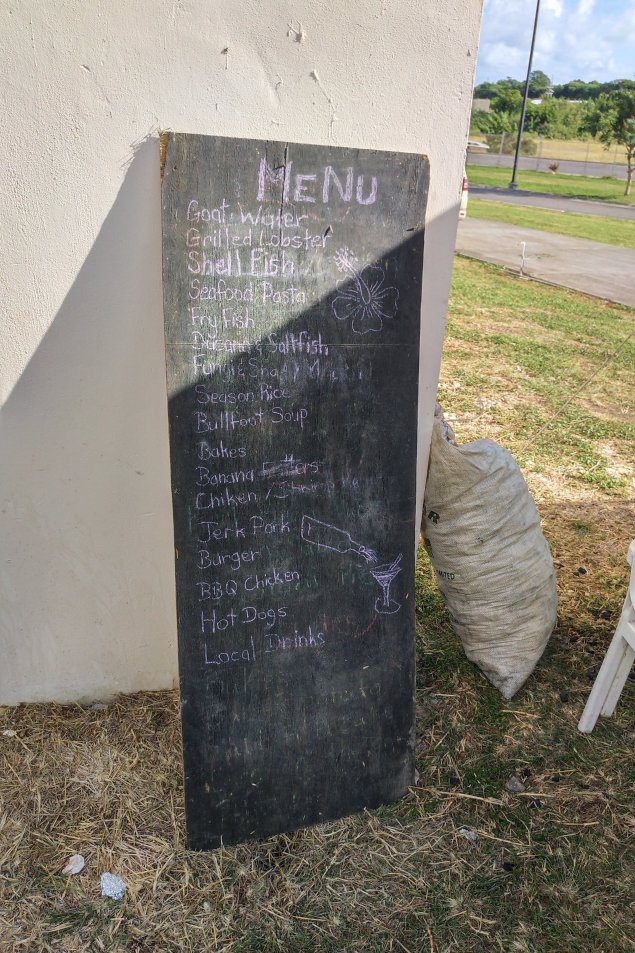 MeNu
Goat Water
Grilled Lobster
Shell Fish
Seafood Pasta
Fry Fish
Ducana & Saltfish
Fungi &
Season Rice
Bullfoot Soup
Bakes
Banana
Chiken /
Jerk Pork
Burger
BBQ Chicken
Hot Dogs
Local Drinks